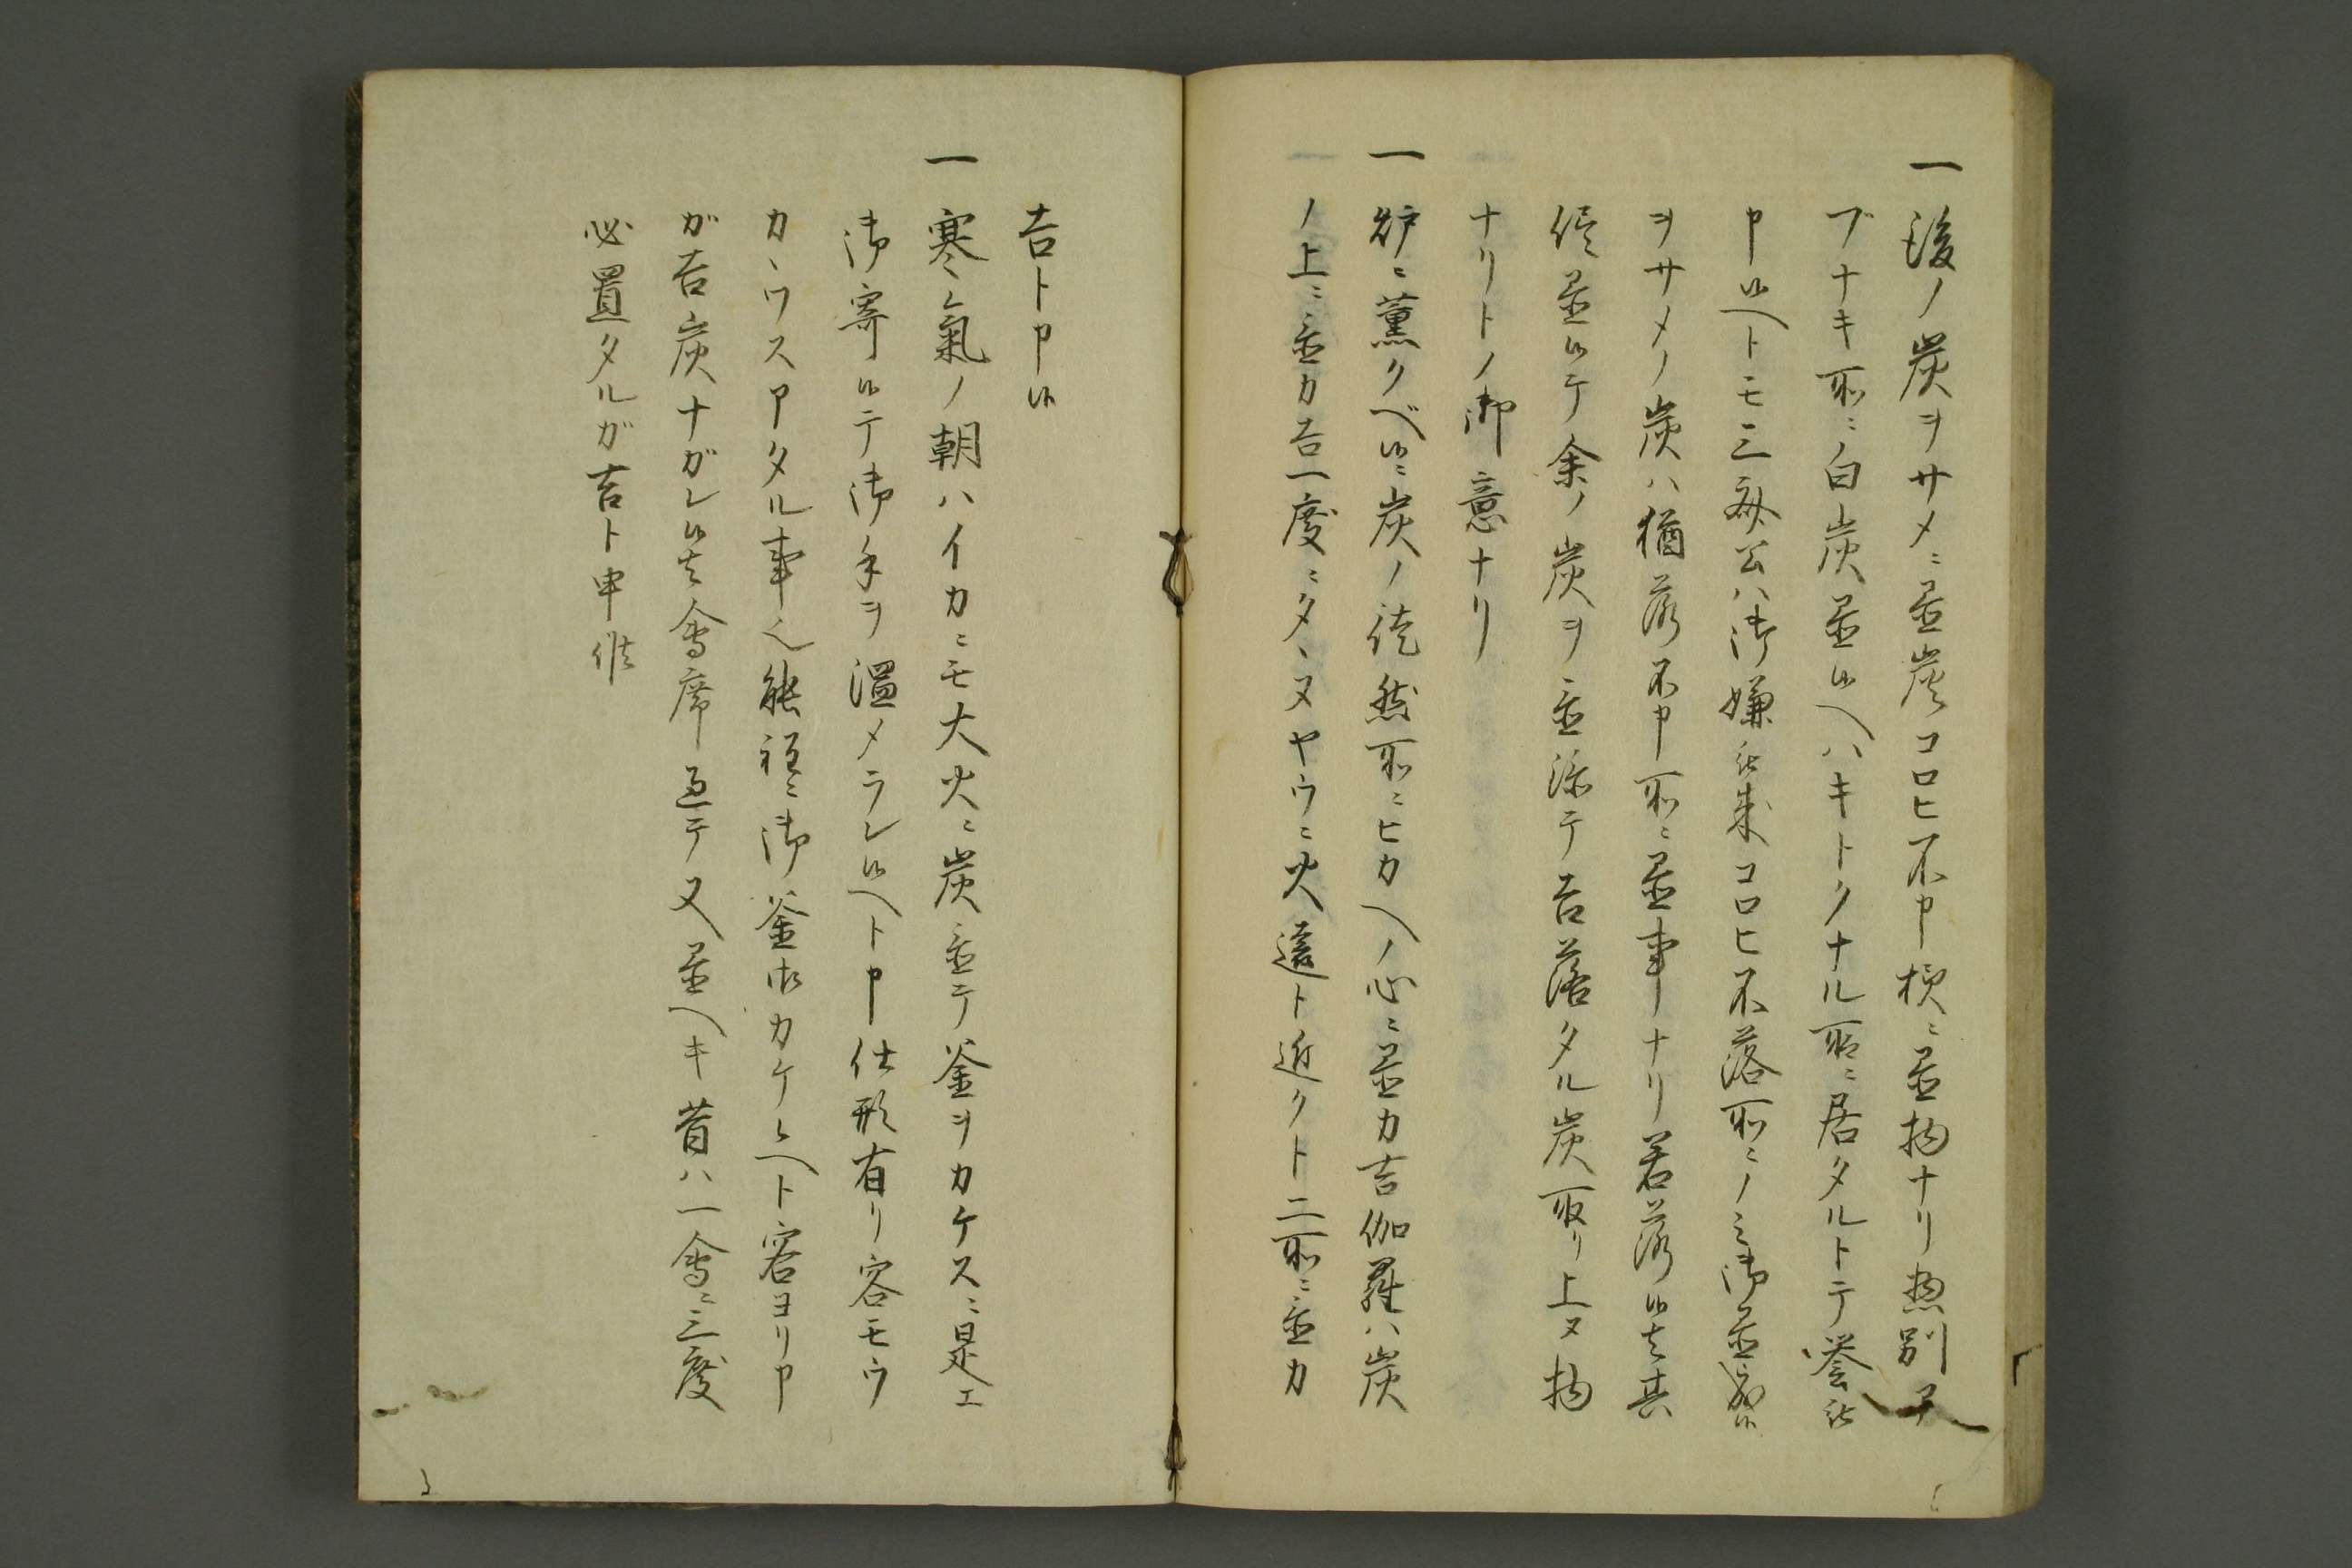 一後ノ炭ヲサメニ置炭コロヒ不申様ニ置物ナリ惣別ア
ブナキ所ニ白炭置候ヘハキトクナル所ニ居タルトテ誉
申候ヘトモ三斎公ハ御嫌被成コロヒ不落所ニノミ御置被成候
ヲサメノ炭ハ猶落不申所ニ置事ナリ若落候共其
侭置候テ余ノ炭ヲ置添テ吉落タル炭取リ上ヌ物
ナリトノ御意ナリ
一炉ニ薫クベ候ニ炭ノ徒然所ニヒカヘノ心ニ置カ吉伽羅ハ炭
ノ上ニ置カ吉一度ニタヽヌヤウニ火遠ト近クト二所ニ置カ
吉ト申候
一寒氣ノ朝ハイカニモ大火ニ炭置テ釜ヲカケスニ是エ
御寄候テ御手ヲ温メラレ候ヘト申仕形有リ客モウ
カヽウスアタル事也能程ニ御釜御カケ候ヘト客ヨリ申
が吉炭ナガレ候共會席過テ又置ヘキ昔ハ一會ニ三度
必置タルガ吉ト申候